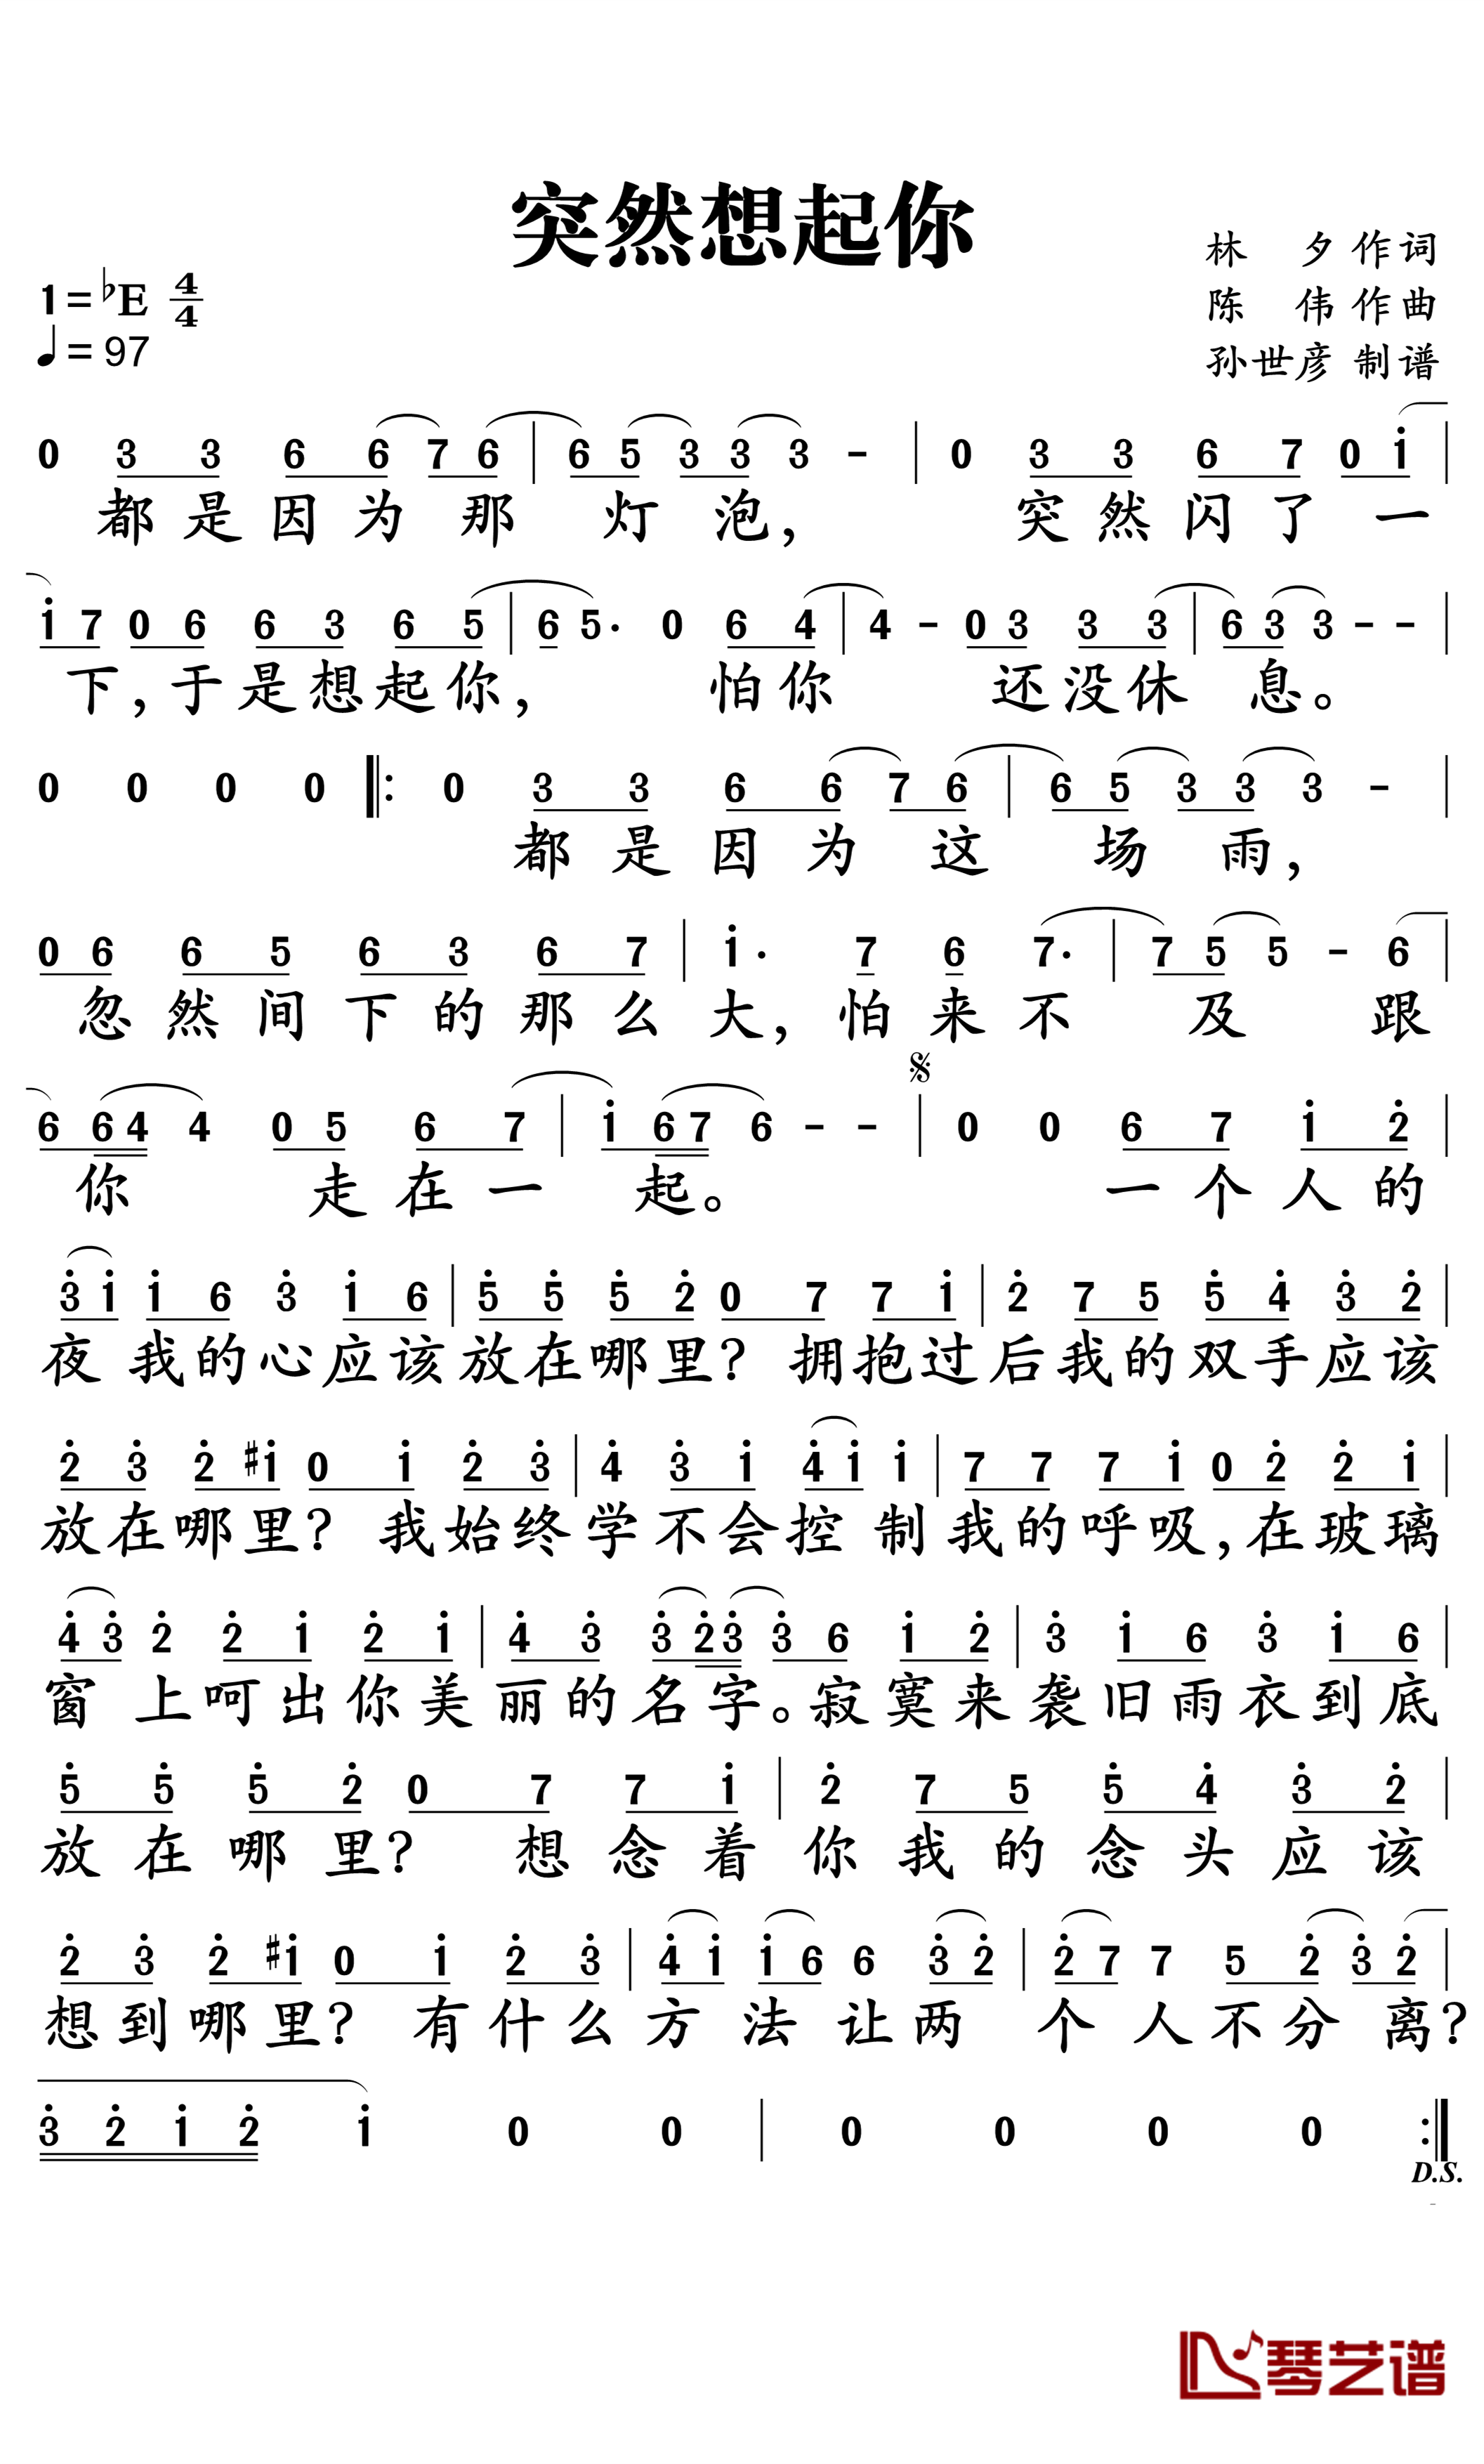 突然想起你
林 夕 作 词
1=♭E 4/4
陈 伟 作 曲
♩=97
孙世彦 制 谱
0 3 3 6 6 7 6 | 6 5 3 3 3 - | 0 3 3 6 7 0 i |
都 是 因 为 那 灯 泡, 突 然 闪 了 一
i 7 0 6 6 3 6 5 | 6 5· 0 6 4 | 4 - 0 3 3 3 | 6 3 3 - - |
下, 于 是 想 起 你, 怕 你 还 没 休 息。
0 0 0 0 ‖: 0 3 3 6 6 7 6 | 6 5 3 3 3 - |
都 是 因 为 这 场 雨,
0 6 6 5 6 3 6 7 | i· 7 6 7· | 7 5 5 - 6 |
忽 然 间 下 的 那 么 大, 怕 来 不 及 跟
𝄋
6 6 4 4 0 5 6 7 | i 6 7 6 - - | 0 0 6 7 i 2̇ |
你 走 在 一 起。 一 个 人 的
3̇ i i 6 3̇ i 6 | 5̇ 5̇ 5̇ 2̇ 0 7 7 i | 2̇ 7 5 5̇ 4̇ 3̇ 2̇ |
夜 我 的 心 应 该 放 在 哪 里? 拥 抱 过 后 我 的 双 手 应 该
2̇ 3̇ 2̇ #i 0 i 2̇ 3̇ | 4̇ 3̇ i 4̇ i i | 7 7 7 i 0 2̇ 2̇ i |
放 在 哪 里? 我 始 终 学 不 会 控 制 我 的 呼 吸, 在 玻 璃
4̇ 3̇ 2̇ 2̇ i 2̇ i | 4̇ 3̇ 3̇ 2̇ 3̇ 3̇ 6 i 2̇ | 3̇ i 6 3̇ i 6 |
窗 上 呵 出 你 美 丽 的 名 字。 寂 寞 来 袭 旧 雨 衣 到 底
5̇ 5̇ 5̇ 2̇ 0 7 7 i | 2̇ 7 5 5̇ 4̇ 3̇ 2̇ |
放 在 哪 里? 想 念 着 你 我 的 念 头 应 该
2̇ 3̇ 2̇ #i 0 i 2̇ 3̇ | 4̇ i i 6 6 3̇ 2̇ | 2̇ 7 7 5 2̇ 3̇ 2̇ |
想 到 哪 里? 有 什 么 方 法 让 两 个 人 不 分 离?
3̇ 2̇ i 2̇ i 0 0 | 0 0 0 0 :‖
D.S.
琴艺谱